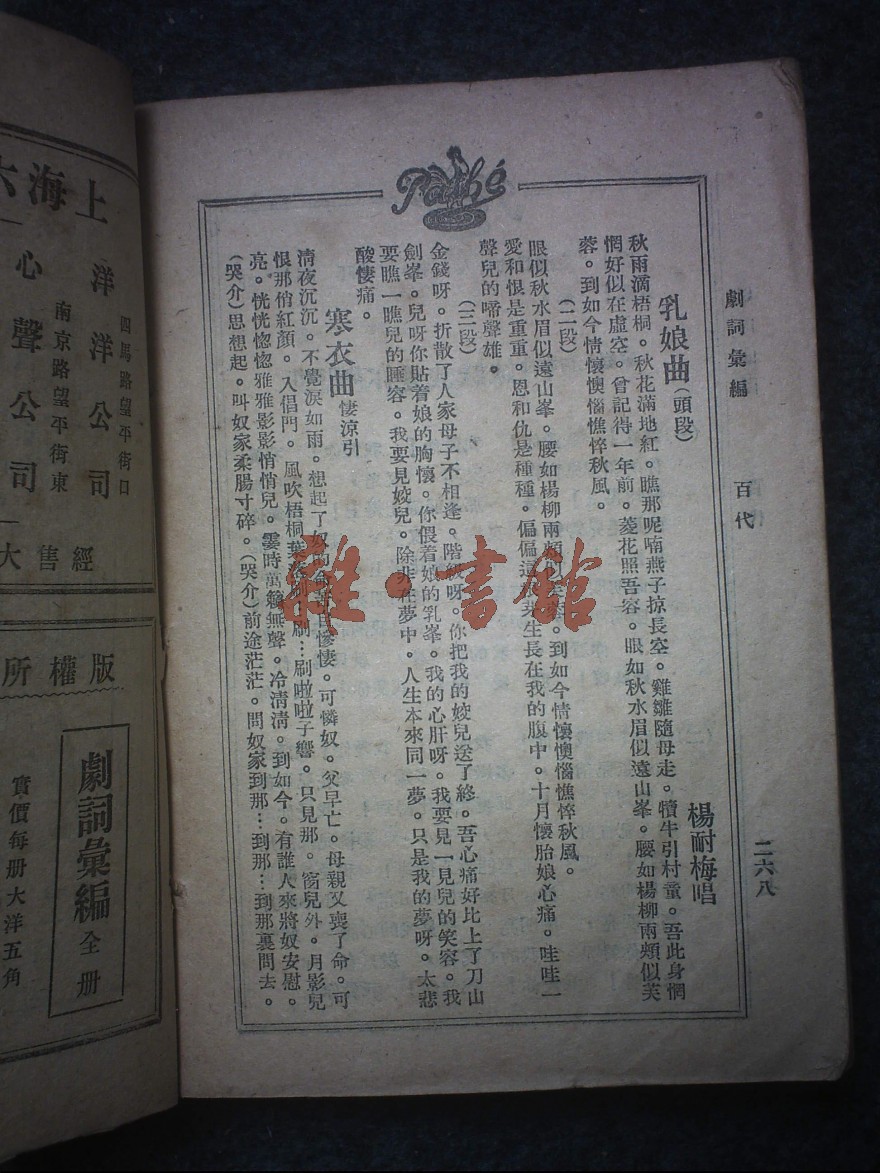 劇詞彙編 百代 二六八
乳娘曲(頭段) 楊耐梅唱
秋雨滴梧桐。秋花滿地紅。瞧那呢喃燕子掠長空。雞雛隨母走。犢牛引村童。吾此身惘
惘好似在虛空。曾記得一年前。菱花照吾容。眼如秋水眉似遠山峯。腰如楊柳兩頰似芙
蓉。到如今情懷懊惱憔悴秋風。
(二段)
眼似秋水眉似遠山峯。腰如楊柳兩頰似芙蓉。到如今情懷懊惱憔悴秋風。
愛和恨是重重。恩和仇是種種。偏偏這根芽生長在我的腹中。十月懷胎娘心痛。哇哇一
聲兒的啼聲雄。
(三段)
金錢呀。折散了人家母子不相逢。階級呀。你把我的姣兒送了終。吾心痛好比上了刀山
劍峯。兒呀你貼着娘的胸懷。你偎着娘的乳峯。我的心肝呀。我要見一見兒的笑容。我
要瞧一瞧兒的睡容。我要見姣兒。除非在夢中。人生本來同一夢。只是我的夢呀。太悲
酸悽痛。
寒衣曲 悽涼引
清夜沉沉。不覺淚如雨。想起了奴的命苦自慘悽。可憐奴。父早亡。母親又喪了命。可
恨那俏紅顏。入倡門。風吹梧桐葉落刷…刷…刷啦啦子響。只見那。窗兒外。月影兒
亮。恍恍惚惚雅雅影影悄悄兒。霎時萬籟無聲。冷清清。到如今。有誰人來將奴安慰。
(哭介)思想起。叫奴家柔腸寸碎。(哭介)前途茫茫。問奴家到那…到那…到那裏問去。
Pathé
雜·書館
上海六
四馬路望平街口
洋洋公司
南京路望平街東
心聲公司
經售大
版權所
劇詞彙編 全册
實價每册大洋五角